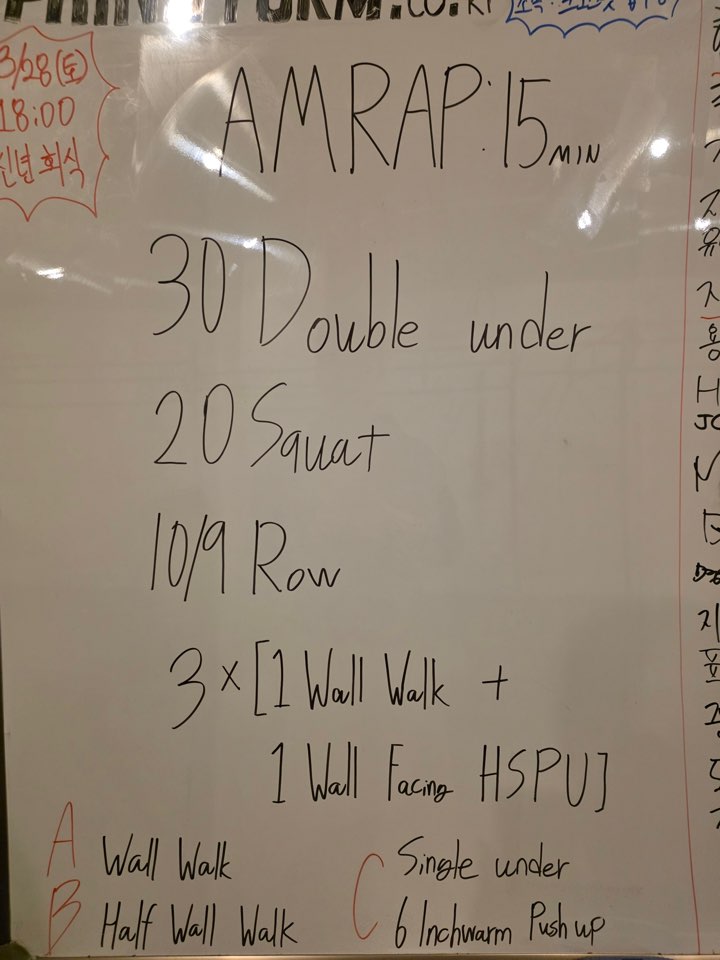 .co.kr
3/28(토)
18:00
신년회식
AMRAP:15MIN
30 Double under
20 Squat
10/9 Row
3 x [1 Wall Walk +
1 Wall Facing HSPU]
A Wall Walk
B Half Wall Walk
C Single under
6 Inchwarm Push up